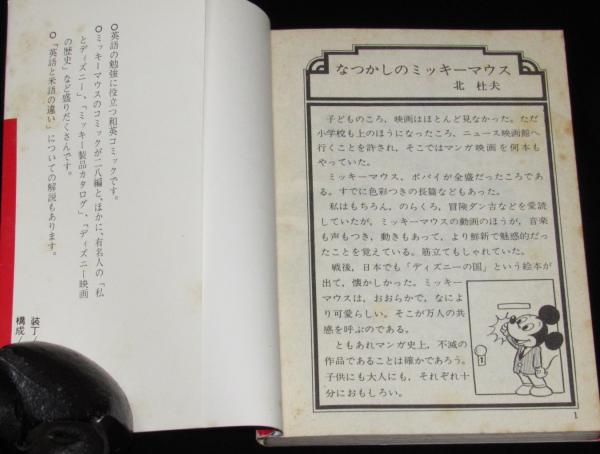 ○英語の勉強に役立つ和英コミックです。
○ミッキーマウスのコミックが二八編と、ほかに、有名人の「私
とディズニー」、「ミッキー製品カタログ」、「ディズニー映画
の歴史」など盛りだくさんです。
○「英語と米語の違い」についての解説もあります。
装丁／
構成／
なつかしのミッキーマウス
北 杜夫
子どものころ，映画はほとんど見なかった。ただ
小学校も上のほうになったころ，ニュース映画館へ
行くことを許され，そこではマンガ映画を何本も
やっていた。
ミッキーマウス，ポパイが全盛だったころであ
る。すでに色彩つきの長篇などもあった。
私はもちろん，のらくろ，冒険ダン吉などを愛読
していたが，ミッキーマウスの動画のほうが，音楽
も声もつき，動きもあって，より鮮新で魅惑的だっ
たことを覚えている。筋立てもしゃれていた。
戦後，日本でも「ディズニーの国」という絵本が
出て，懐しかった。ミッキー
マウスは，おおらかで，なによ
り可愛らしい。そこが万人の共
感を呼ぶのである。
ともあれマンガ史上，不滅の
作品であることは確かであろう。
子供にも大人にも，それぞれ十
分におもしろい。
1